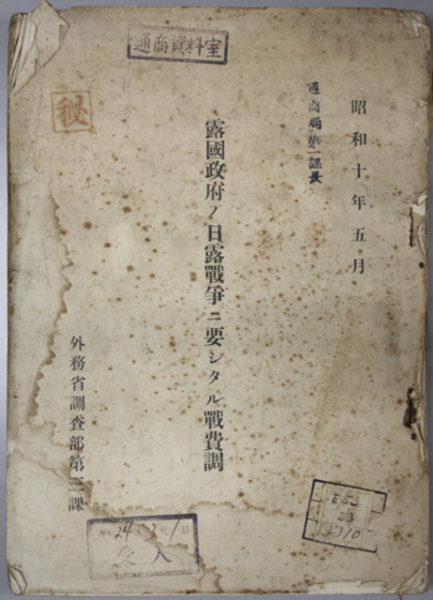 通商資料室
昭和十年五月
通商局第一課長
露國政府ノ日露戰爭ニ要シタル戰費調
秘
外務省調査部第三課
24
受入
E53